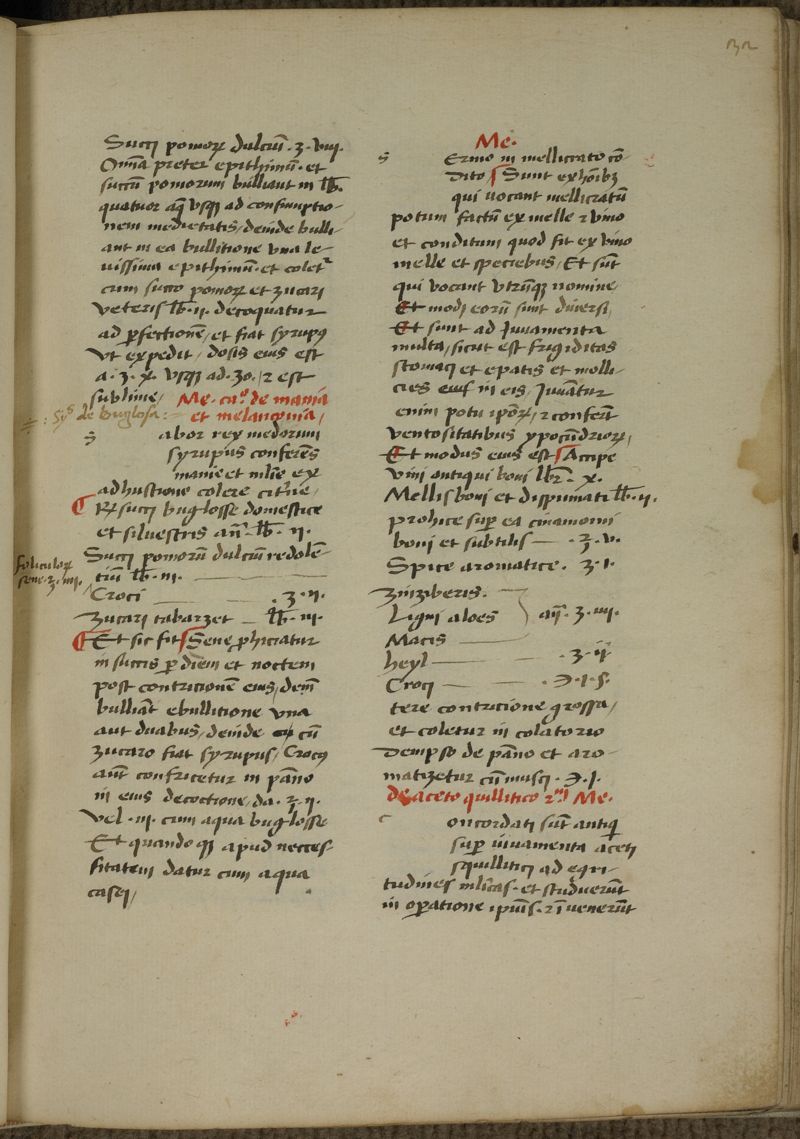 32
Succi pomoꝝ dulciū. ʒ. viij.
Om̄ia preter epithimū. et
succū pomorum bulliant in lƀ.
quatuor aq̄ vsqꝫ ad consumptio-
nem medietatis / deinde bulli-
ant in ea bullitione vna le-
uissima epithimū. et colet᷑
cum succo pomoꝝ et zucari
veteris lƀ. ij. decoquatur
ad ꝑfectionē / et fiat syrupꝰ
vt expedit / dosis eius est
a. ʒ. x. vsqꝫ ad. 30. / ⁊ est
sublime /
Me. ca. de mania
et melanconia /
Syꝰ de buglosa:
s
abor rex medorum
syrupus conferēs
manie et
ex
adhustione colere citͥne /
R succi buglosse domestice
et siluestris an̄. lƀ. ij.
Succi pomorū dulciū redolē-
tiū lƀ. iij.
foliculoꝝ
sene. ʒ. iiij.
Croci ʒ. ij.
Zucari tabarzet lƀ. iij.
Et sic fit / Sene ꝓhiciatur
in succis ꝑ diem et noctem
post contricionē eius / dein̄
bulliāt ebullitione vna
aut duabus / deinde cū
zucaro fiat syrupus / Crocꝰ
aut̄ confricetur in pāno
in eius decoctione / da. ʒ. ij.
Vel. iij. cum aqua buglosse
Et quandoqꝫ apud neces-
sitatem datur cum aqua
casei /
Me.
s
Ermo in mellicrato cō-
dito / Sunt ex hoīibꝫ
qui uocant mellicratū
potum factū ex melle ⁊ vino
et conditum quod fit ex vino
melle et speciebus / Et sūt
qui vocant vtrūqꝫ nomine
Et modi eorū sunt diuersi
Et sunt ad Juuamenta
multa / sicut est frigiditas
stomaci et epatis et molli-
cies
in eis / Juuātur
enim potu ipōꝝ / ⁊ conferūt
ventositatibus ypocūdrioꝝ /
Et modus eius est / Accipe
Vini antiqui boni lƀr. x.
Mellis boni et dispumati lƀ. ij.
prohice suꝑ ea cinamomi
boni et subtilis . ʒ. v.
Spice aromatice. ʒ. 1.
Zinziberis.
Ligni aloes an̄. ʒ. iiij.
Macis
heyl . ʒ. ij
Croci . ℈. 1. s.
tere contricione grossa /
et coletur in colatorio
dempso de pāno et aro-
matizetur cū musci. ℈. 1.
de aceto quillitico Me.
c
oncordati sūt antiqi
suꝑ iuuamenta aceti
squillitici ad egri-
tudines mltas. et studuerūt
in oꝑatione ipius. ⁊ īuenerūt